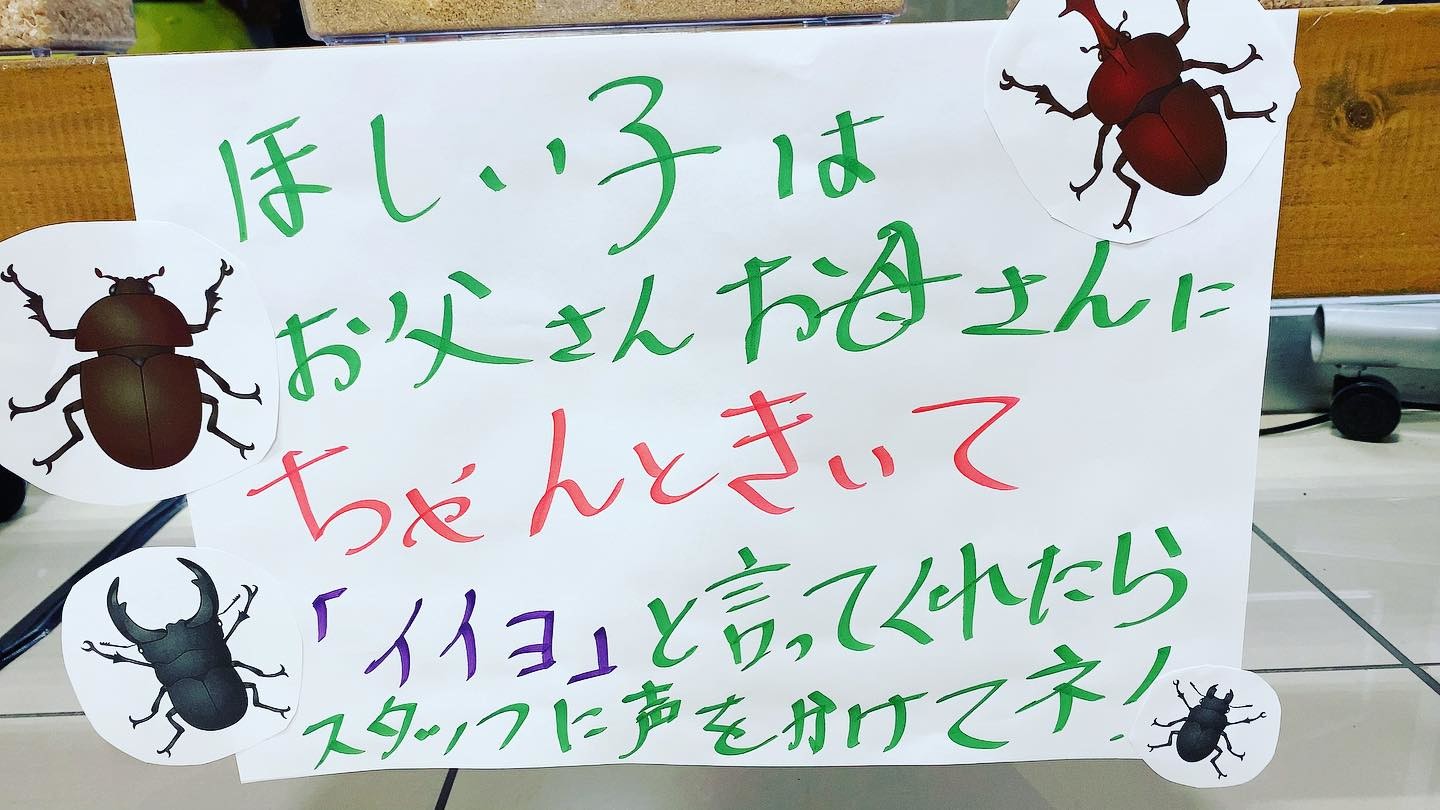 ほしい子は
お父さんお母さんに
ちゃんときいて
「イイヨ」と言ってくれたら
スタッフに声をかけてネ!